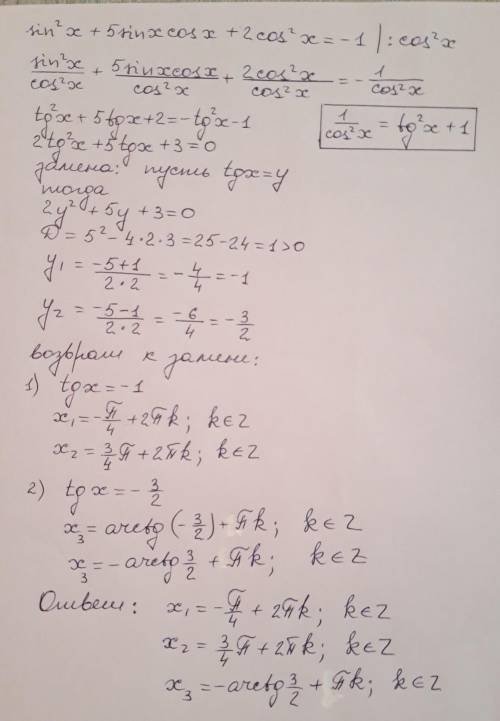 sin²x + 5sinx cosx + 2cos²x = -1 | : cos²x
sin²x/cos²x + 5sinxcosx/cos²x + 2cos²x/cos²x = - 1/cos²x
tg²x + 5tgx + 2 = -tg²x - 1
1/cos²x = tg²x + 1
2tg²x + 5tgx + 3 = 0
замена: пусть tgx = y
тогда
2y² + 5y + 3 = 0
D = 5² - 4·2·3 = 25 - 24 = 1 > 0
y₁ = (-5+1)/(2·2) = -4/4 = -1
y₂ = (-5-1)/(2·2) = -6/4 = -3/2
возврат к замене:
1) tgx = -1
x₁ = -π/4 + 2πk; k∈Z
x₂ = 3/4 π + 2πk; k∈Z
2) tgx = -3/2
x₃ = arctg(-3/2) + πk; k∈Z
x₃ = -arctg 3/2 + πk; k∈Z
Ответ: x₁ = -π/4 + 2πk; k∈Z
x₂ = 3/4 π + 2πk; k∈Z
x₃ = -arctg 3/2 + πk; k∈Z